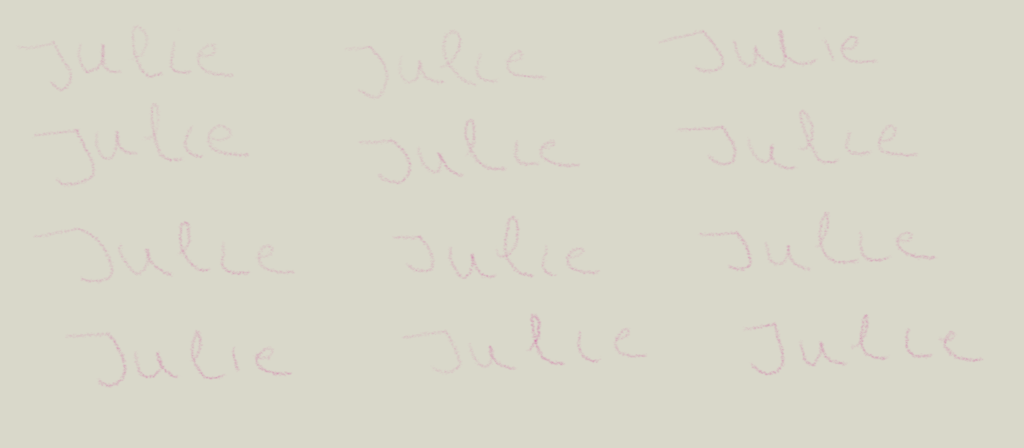 Julie Julie Julie
Julie Julie Julie
Julie Julie Julie
Julie Julie Julie